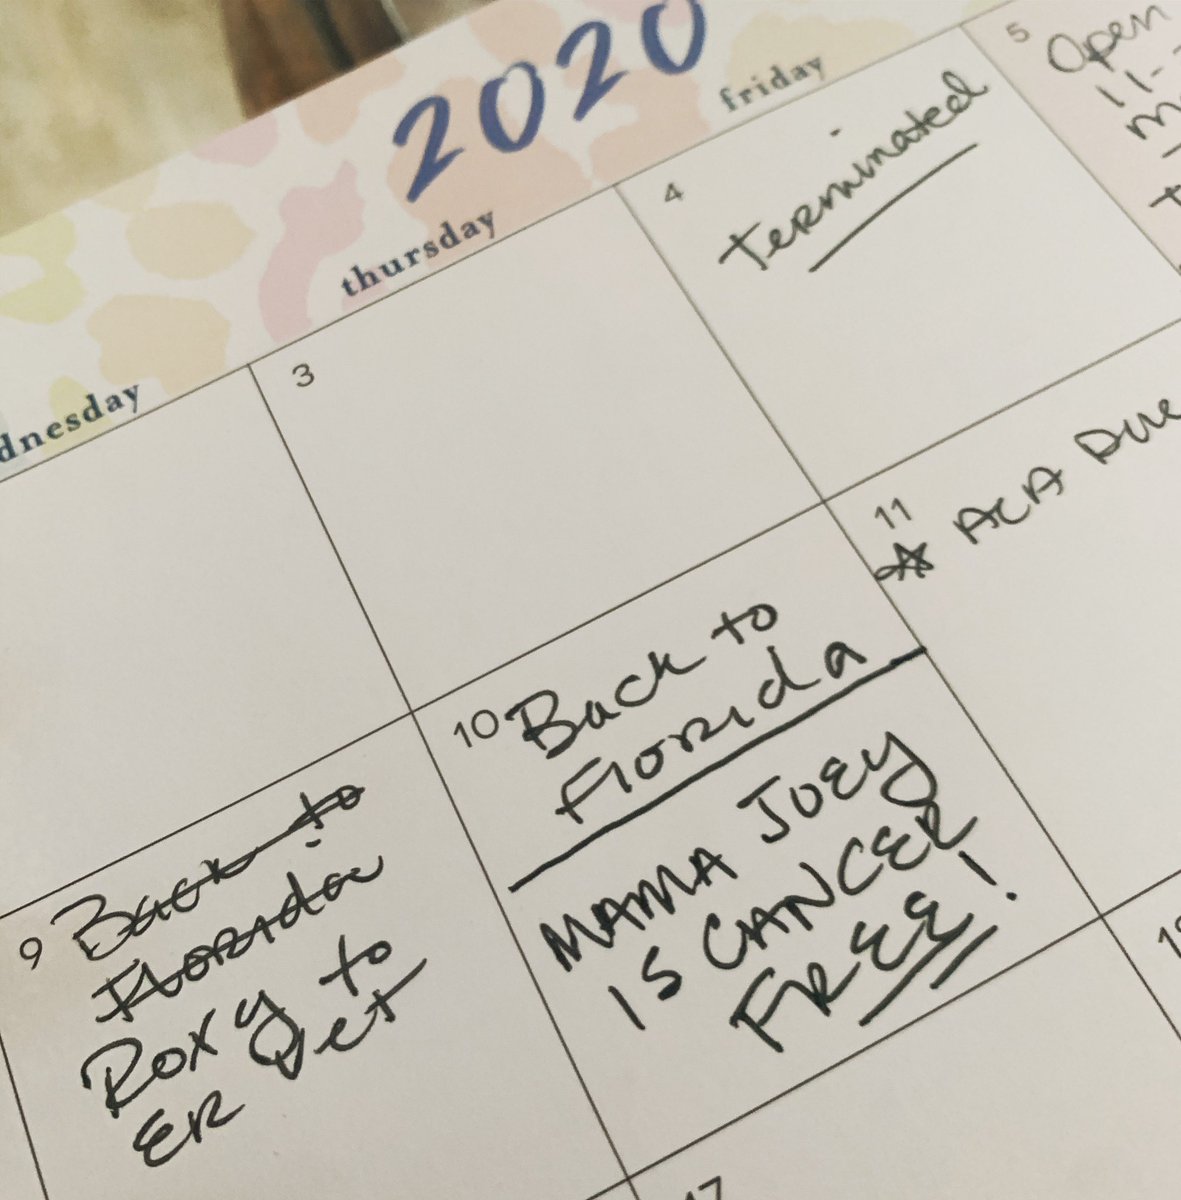 2020
dnesday
thursday
friday
3
4
Terminated
5
Open
11-
9
Back to
Florida
Roxy to
ER Vet
10
Back to
Florida
MAMA JOEY
IS CANCER
FREE!
11
☆ ACA Due
17